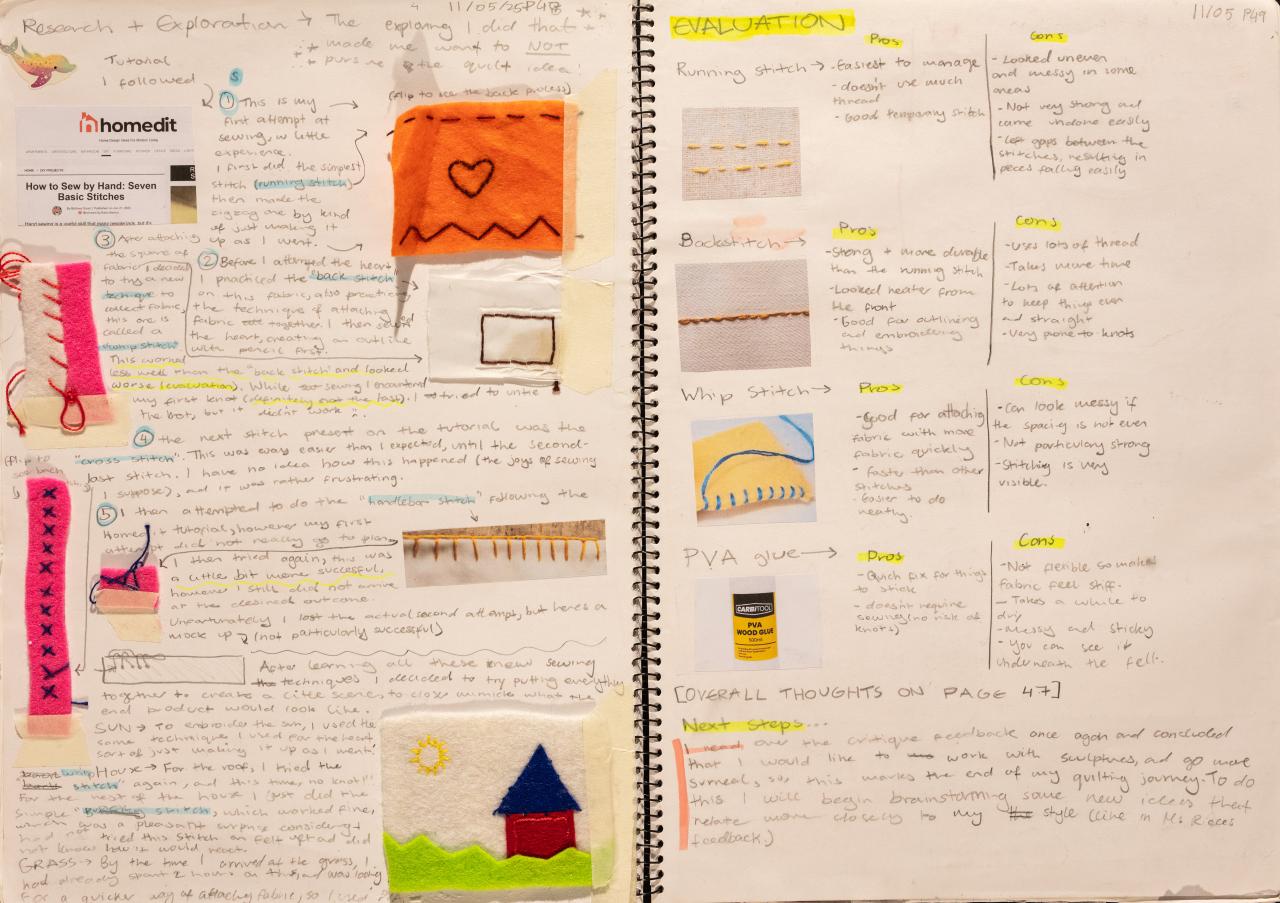 11/05/25 P48
Research + Exploration → The exploring I did that
made me want to NOT
pursue the quilt idea!
Tutorial
I followed
(flip to see the back process)
homedit
Home Design Ideas For Modern Living
HOME > DIY PROJECTS
How to Sew by Hand: Seven
Basic Stitches
Hand sewing is a useful skill that many people lack, but it's
① This is my
first attempt at
sewing, w little
experience.
I first did the simplest
stitch (running stitch)
then made the
zigzag one by kind
of just making it
up as I went.
② Before I attempted the heart
I practiced the "back stitch"
on this fabric, also practicing
the technique of attaching
fabric together. I then sewed
the heart, creating an outline
with pencil first.
③ After attaching
the square of
fabric I decided
to try a new
technique to
collect fabric,
this one is
called a
"whip stitch"
This worked
less well than the "back stitch" and looked
worse (evacuation). While sewing I encountered
my first knot (definitely not the last). I tried to untie
the knot, but it didn't work
④ the next stitch present on the tutorial was the
"cross stitch". This was way easier than I expected, until the second-
last stitch. I have no idea how this happened (the joys of sewing
I suppose), and it was rather frustrating.
(flip to
see back
⑤ I then attempted to do the "handlebar stitch" following the
Homedit tutorial, however my first
attempt did not really go to plan.
I then tried again, this was
a little bit more successful,
however I still did not arrive
at the desired outcome.
Unfortunately I lost the actual second attempt, but here's a
mock up (not particularly successful)
After learning all these new sewing
techniques I decided to try putting everything
together to create a little scene, to closer mimick what the
end product would look like.
SUN → To embroider the sun, I used the
same technique I used for the heart
sort of just making it up as I went.
HOUSE → For the roof, I tried the
whip stitch" again, and this time, no knot!
For the rest of the house I just did the
simple "running stitch", which worked fine,
which was a pleasant surprise considering I
had not tried this stitch on felt yet and did
not know how it would react.
GRASS → By the time I arrived at the grass, I
had already spent 2 hours on this, and was looking
for a quicker way of attaching fabric, so I used
11/05 P49
EVALUATION
Running stitch →
Pros
- Easiest to manage
- doesn't use much
thread
- Good temporary stitch
Cons
- Looked uneven
and messy in some
areas
- Not very strong and
came undone easily
- Left gaps between the
stitches, resulting in
peces falling easily
Backstitch →
Pros
- Strong + more durable
than the running stitch
- Looked neater from
the front
- Good for outlining
and embroiding
things
Cons
- Uses lots of thread
- Takes more time
- Lots of attention
to keep things even
and straight
- Very prone to knots
Whip Stitch →
Pros
- Good for attaching
fabric with more
fabric quickly
- faster than other
stitches
- Easier to do
neatly.
Cons
- Can look messy if
the spacing is not even
- Not particulary strong
- Stitching is very
visible.
PVA glue →
CARBITOOL
PVA
WOOD GLUE
500ml
Pros
- Quick fix for things
to stick
- doesn't require
sewing (no risk of
knots)
Cons
- Not flexible so makes
fabric feel stiff.
- Takes a while to
dry
- Messy and sticky
- You can see it
underneath the felt.
[OVERALL THOUGHTS ON PAGE 47]
Next steps...
I read over the critique feedback once again and concluded
that I would like to work with sculptures, and go more
surreal, so, this marks the end of my quilting journey. To do
this I will begin brainstorming some new ideas that
relate more closely to my style (like in Ms Rices
feedback.)